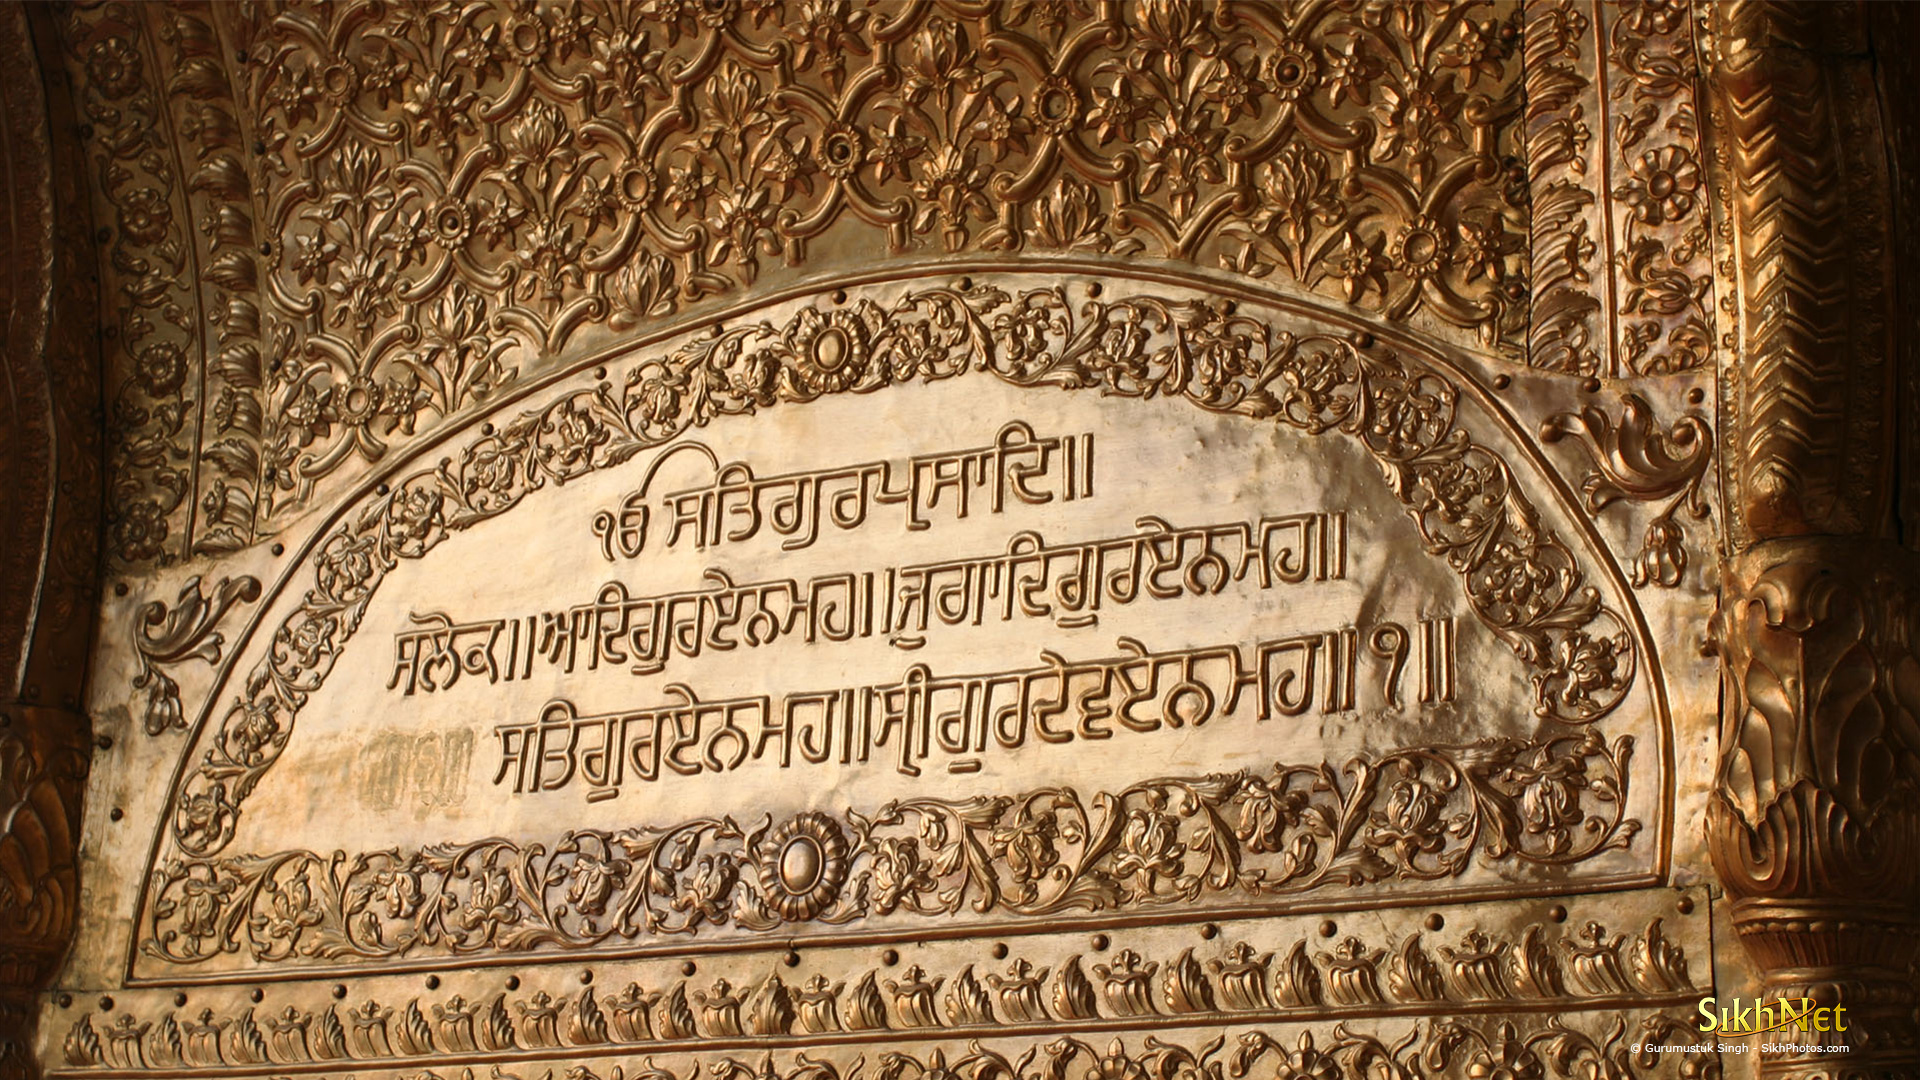 ੴ ਸਤਿਗੁਰਪ੍ਰਸਾਦਿ॥
ਸਲੋਕ॥ਆਦਿਗੁਰਏਨਮਹ॥ਜੁਗਾਦਿਗੁਰਏਨਮਹ॥
ਸਤਿਗੁਰਏਨਮਹ॥ਸ੍ਰੀਗੁਰਦੇਵਏਨਮਹ॥੧॥
SikhNet
© Gurumustuk Singh - SikhPhotos.com